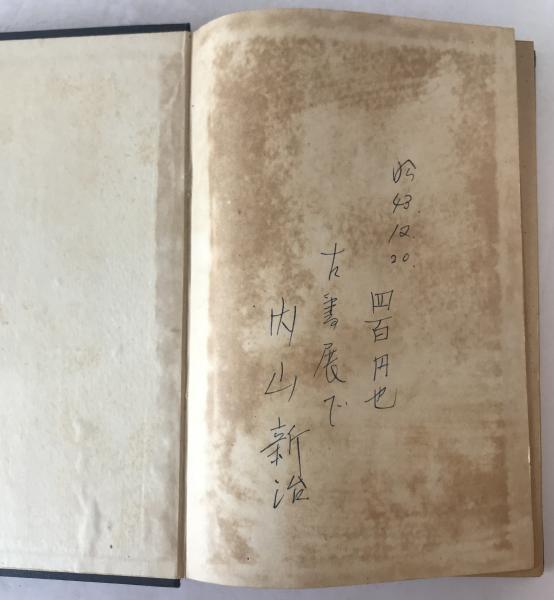 昭43.12.20. 四百円也
古書展で
内山新治